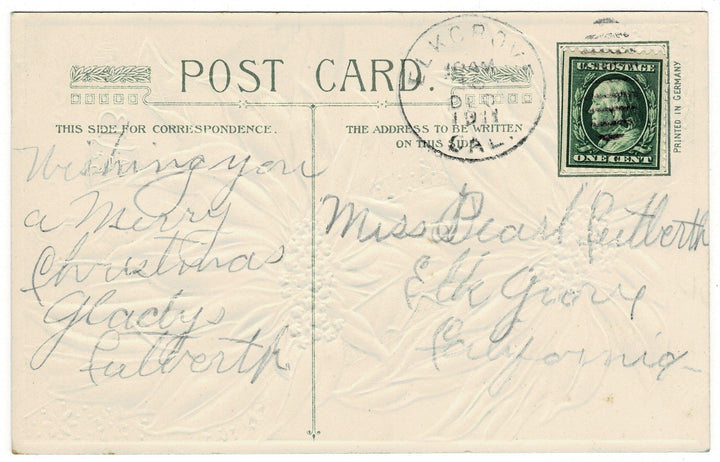 POST CARD.
THIS SIDE FOR CORRESPONDENCE.
THE ADDRESS TO BE WRITTEN
ON THIS SIDE
ELK GROVE
10 AM
DEC
1911
CAL.
U.S. POSTAGE
ONE CENT
PRINTED IN GERMANY
Wishing you
a Merry
Christmas
Gladys
Cutberth
Miss Pearl Cutberth
Elk Grove
California